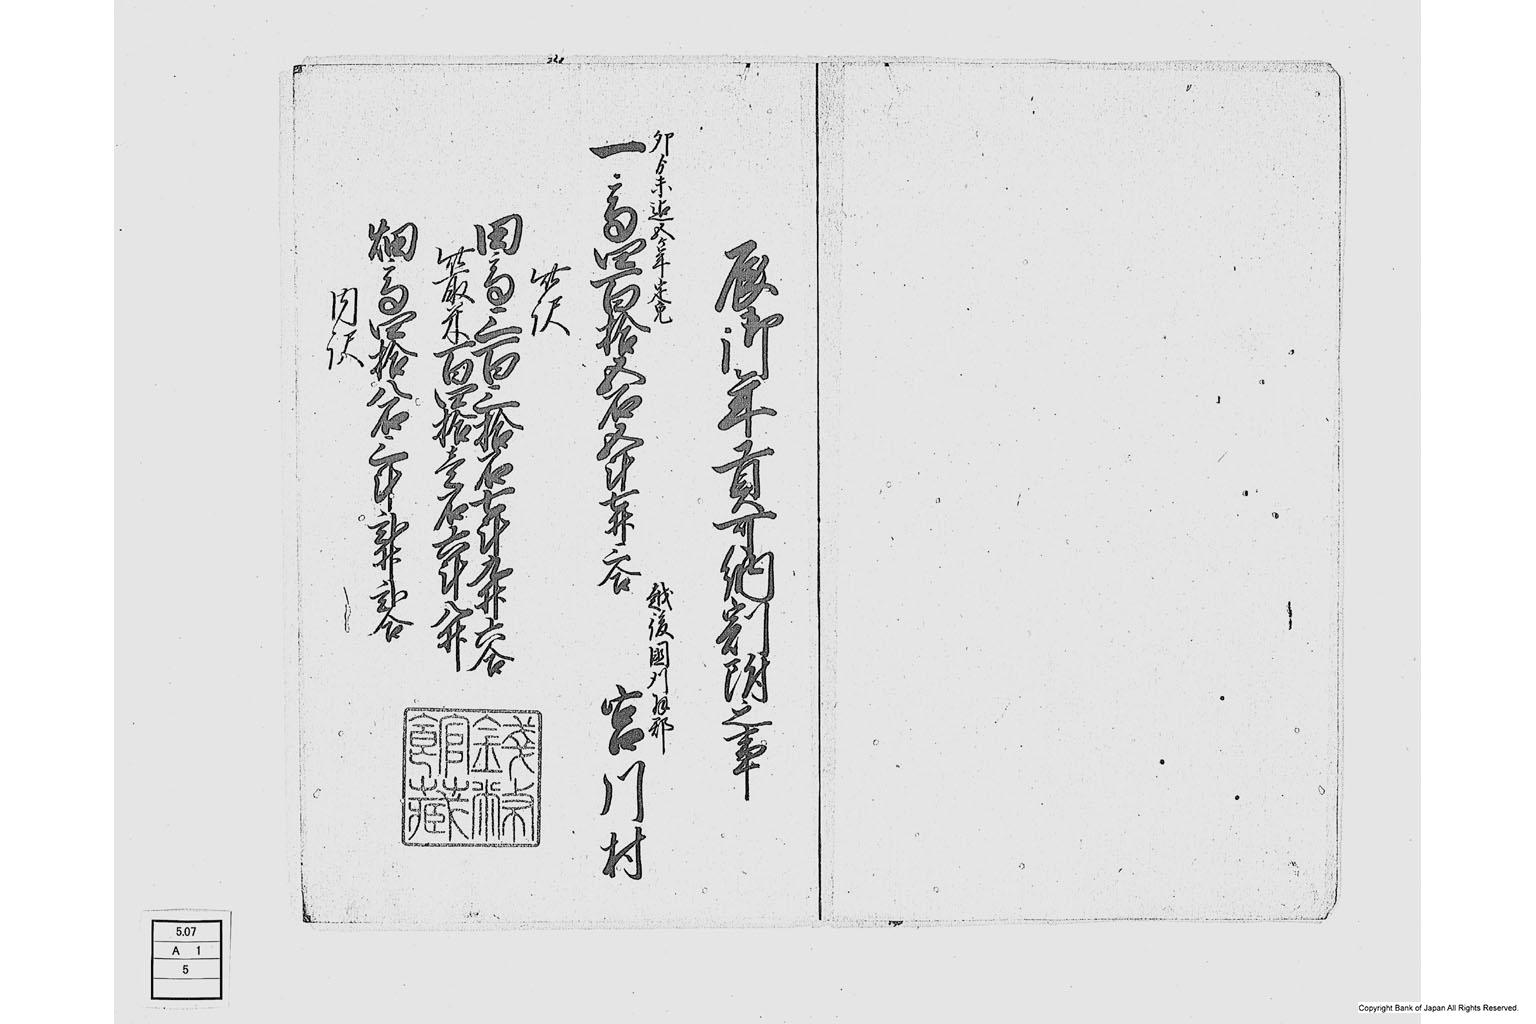 辰御年貢可納割附之事
卯ゟ未迄五ケ年定免
越後國刈羽郡
一高四百拾五石五斗七升三合 宮川村
此訳
田高三百三拾石七斗九升六合
此取米百四拾壱石六斗八升
畑高四拾八石三斗弐升弐合
内訳
錢幣館藏
5.07
A 1
5
Copyright Bank of Japan All Rights Reserved.